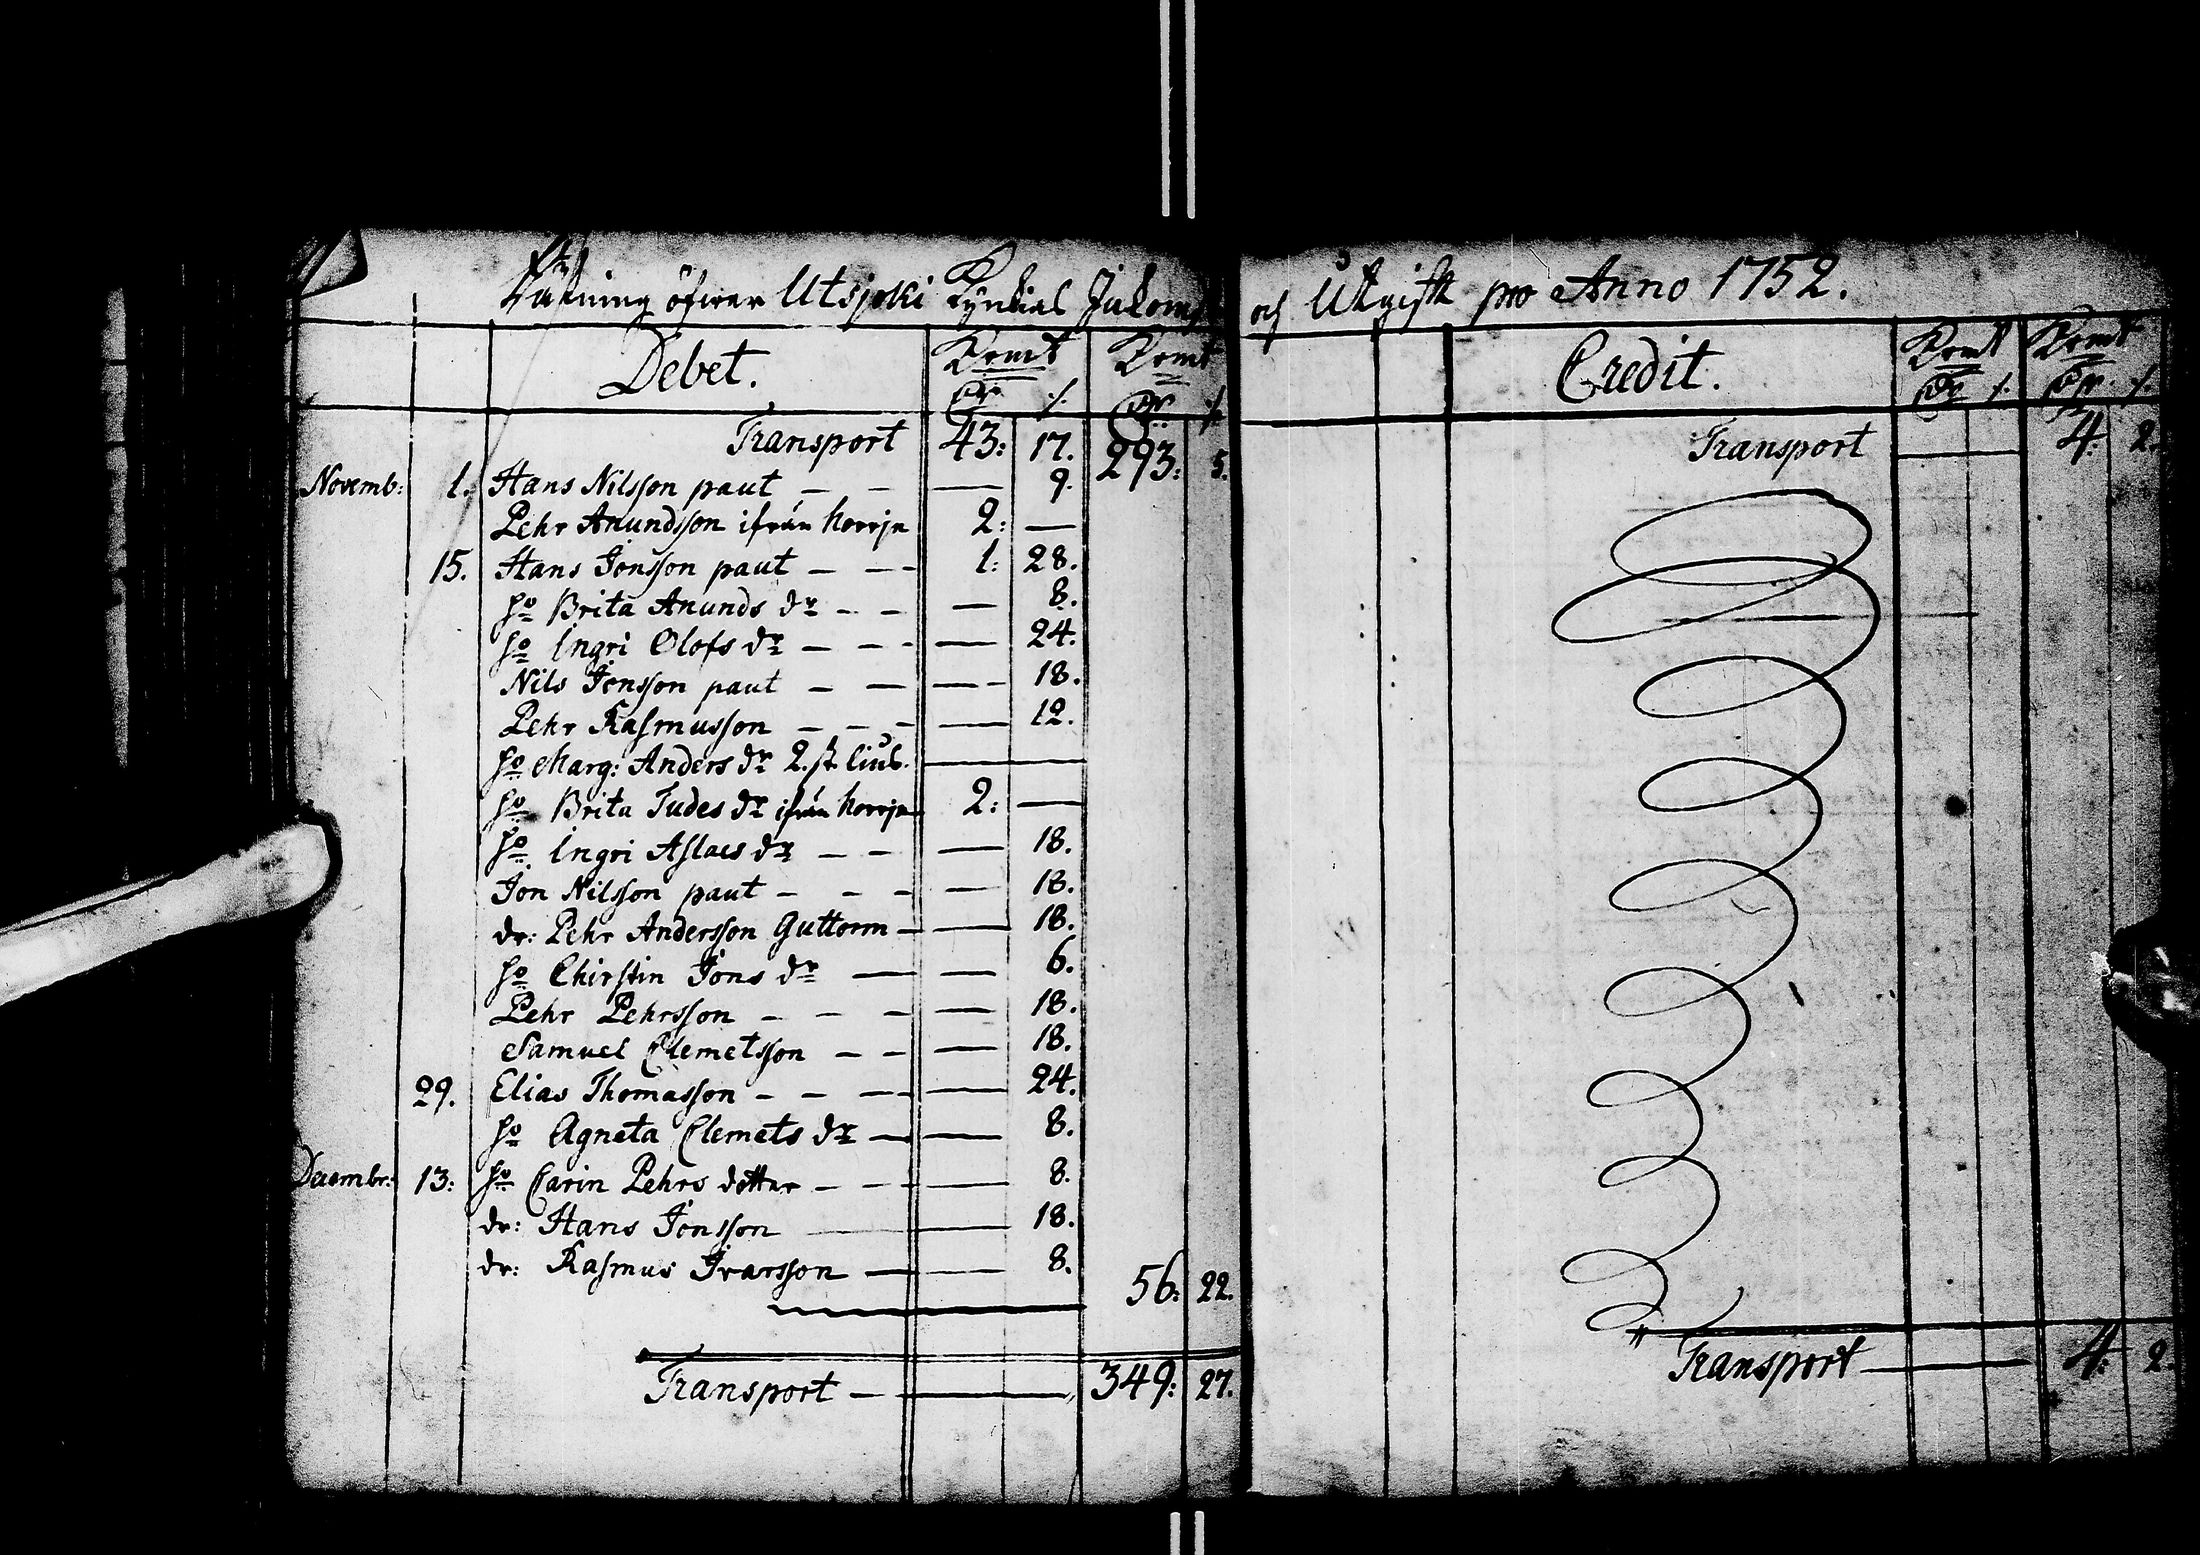 Räkning öfwer Utsjoki Kyrkias Inkomst och Utgift pro Anno 1752.
Debet. Krmt Krmt
Dr /. Dr /.
Transport 43: 17. 293: 5.
Novemb: 1. Hans Nilsson paut — — — 9.
Pehr Anundsson ifrån Norrje 2: —
15. Hans Jonsson paut — — - 1: 28.
ho Brita Anunds dr - — — 8.
ho Ingri Olofs dr — — - — 24.
Nils Jonsson paut — — — 18.
Pehr Rasmusson — — - — 12.
ho Marg: Anders dr 2. st. lius. —
ho Brita Tudes dr ifrån Norrje 2: —
ho Ingri Aslacs dr — — — 18.
Jon Nilsson paut — — - — 18.
dr: Pehr Andersson Guttorm — — 18.
ho Chirstin Jons dr — — 6.
Pehr Pehrsson — — — — 18.
Samuel Clemetsson — — — 18.
29. Elias Thomasson - — — — 24.
ho Agneta Clemets dr — — 8.
Decembr: 13: ho Carin Pehrs dotter — - — 8.
dr: Hans Jonsson — 18.
dr: Rasmus Ivarsson — — 8.
56: 22.
Transport — — 349: 27.
Credit. Krmt Krmt
Dr /. Dr /.
Transport — 4: 2.
Transport — 4: 2.